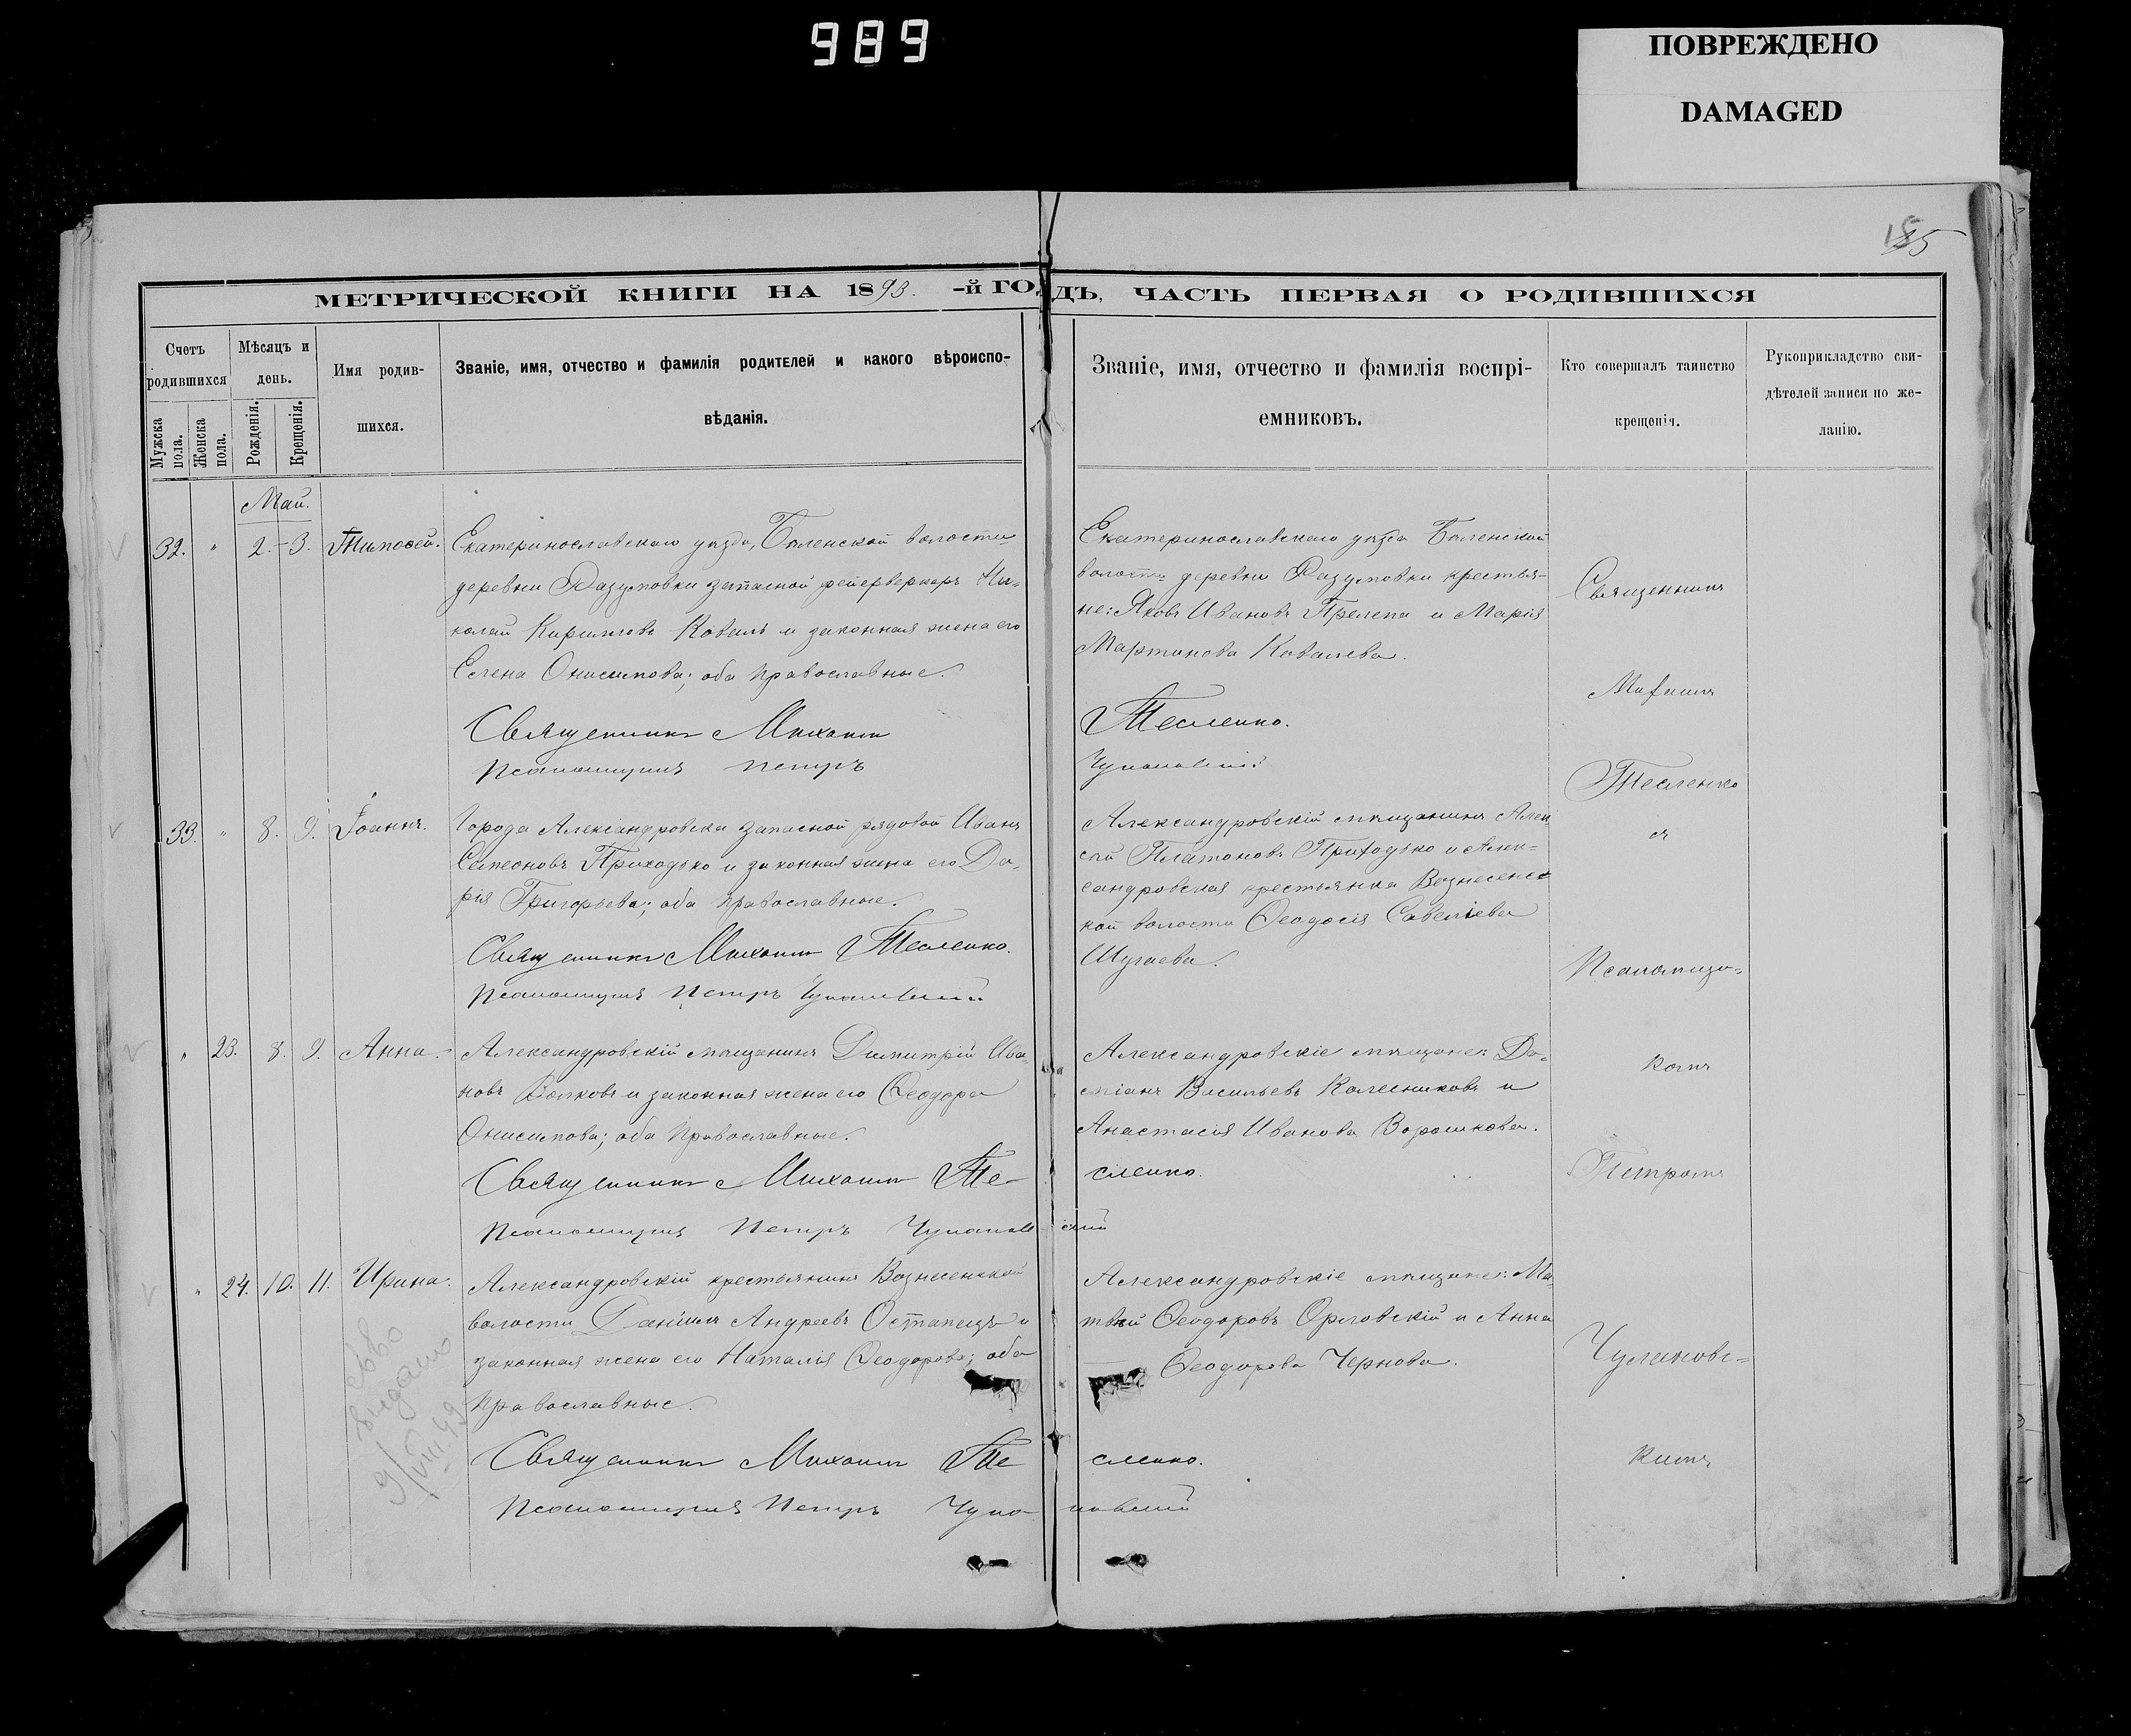 989
ПОВРЕЖДЕНО
DAMAGED
МЕТРИЧЕСКОЙ КНИГИ НА 1893. -й ГОДЪ, ЧАСТЬ ПЕРВАЯ О РОДИВШИХСЯ
Счетъ родившихся
Мужска пола.
Женска пола.
Мѣсяцъ и день.
Рожденія.
Крещенія.
Имя родив-
шихся.
Званіе, имя, отчество и фамилія родителей и какого вѣроиспо-
вѣданія.
Званіе, имя, отчество и фамилія воспрі-
емниковъ.
Кто совершалъ таинство
крещенія.
Рукоприкладство сви-
дѣтелей записи по же-
ланію.
Май.
32. " 2. 3. Тимоѳей.
Екатеринославскаго уѣзда, Бѣленской волости
деревни Разумовки запасной фейерверкеръ Ни-
колай Кирилловъ Коваль и законная жена его
Елена Онисимова; оба православные.
Священникъ Михаилъ
Псаломщикъ Петръ
Екатеринославскаго уѣзда Бѣленской
волости деревни Разумовки крестья-
не: Яковъ Ивановъ Прелепа и Марія
Мартинова Ковалева.
Тесленко.
33. " 8. 9. Іоаннъ.
Города Александровска запасной рядовой Иванъ
Симеоновъ Приходько и законная жена его Да-
рія Григорьева; оба православные.
Священникъ Михаилъ Тесленко.
Псаломщикъ Петръ
Александровскій мѣщанинъ Алек
сѣй Платоновъ Приходько и Алек-
сандровская крестьянка Вознесенс
кой волости Ѳеодосія Савеліева
" 23. 8. 9. Анна.
Александровскій мѣщанинъ Димитрій Ива-
новъ Волковъ и законная жена его Ѳеодора
Онисимова; оба православные.
Священникъ Михаилъ Те-
Псаломщикъ Петръ
Александровскіе мѣщане: Да-
міанъ Васильевъ Калесниковъ и
Анастасія Иванова Ворошкова.
сленко.
" 24. 10. 11. Ирина.
Александровскій крестьянинъ Вознесенской
волости Даніилъ Андреевъ Остапецъ и
законная жена его Наталія Ѳеодорова; оба
православные.
Священникъ Михаилъ Те
Псаломщикъ Петръ
Александровскіе мѣщане: Ма-
твѣй Ѳеодоровъ Орловскій и Анна
Ѳеодорова Чернова.
сленко.
выдано
9/VIII.49
Священникъ
Михаилъ
Тесленко
съ
Псаломщи-
комъ
Петромъ
кимъ